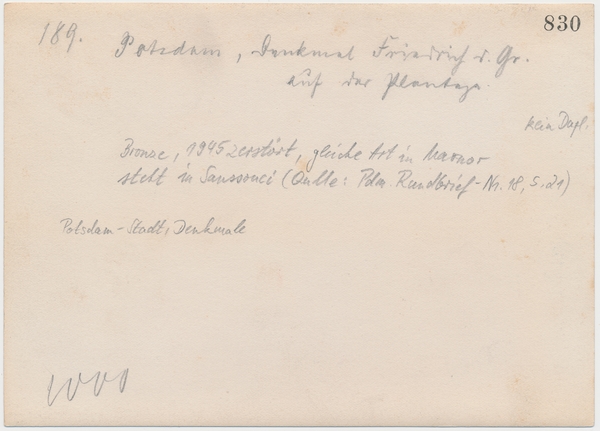 830
189.
Potsdam, Denkmal Friedrich d. Gr.
auf der Plantage
kein Dupl.
Bronze, 1945 zerstört, gleiche Art in Marmor
steht in Sanssouci (Qulle: Pdm. Rundbrief-Nr. 18, S. 21)
Potsdam-Stadt, Denkmale